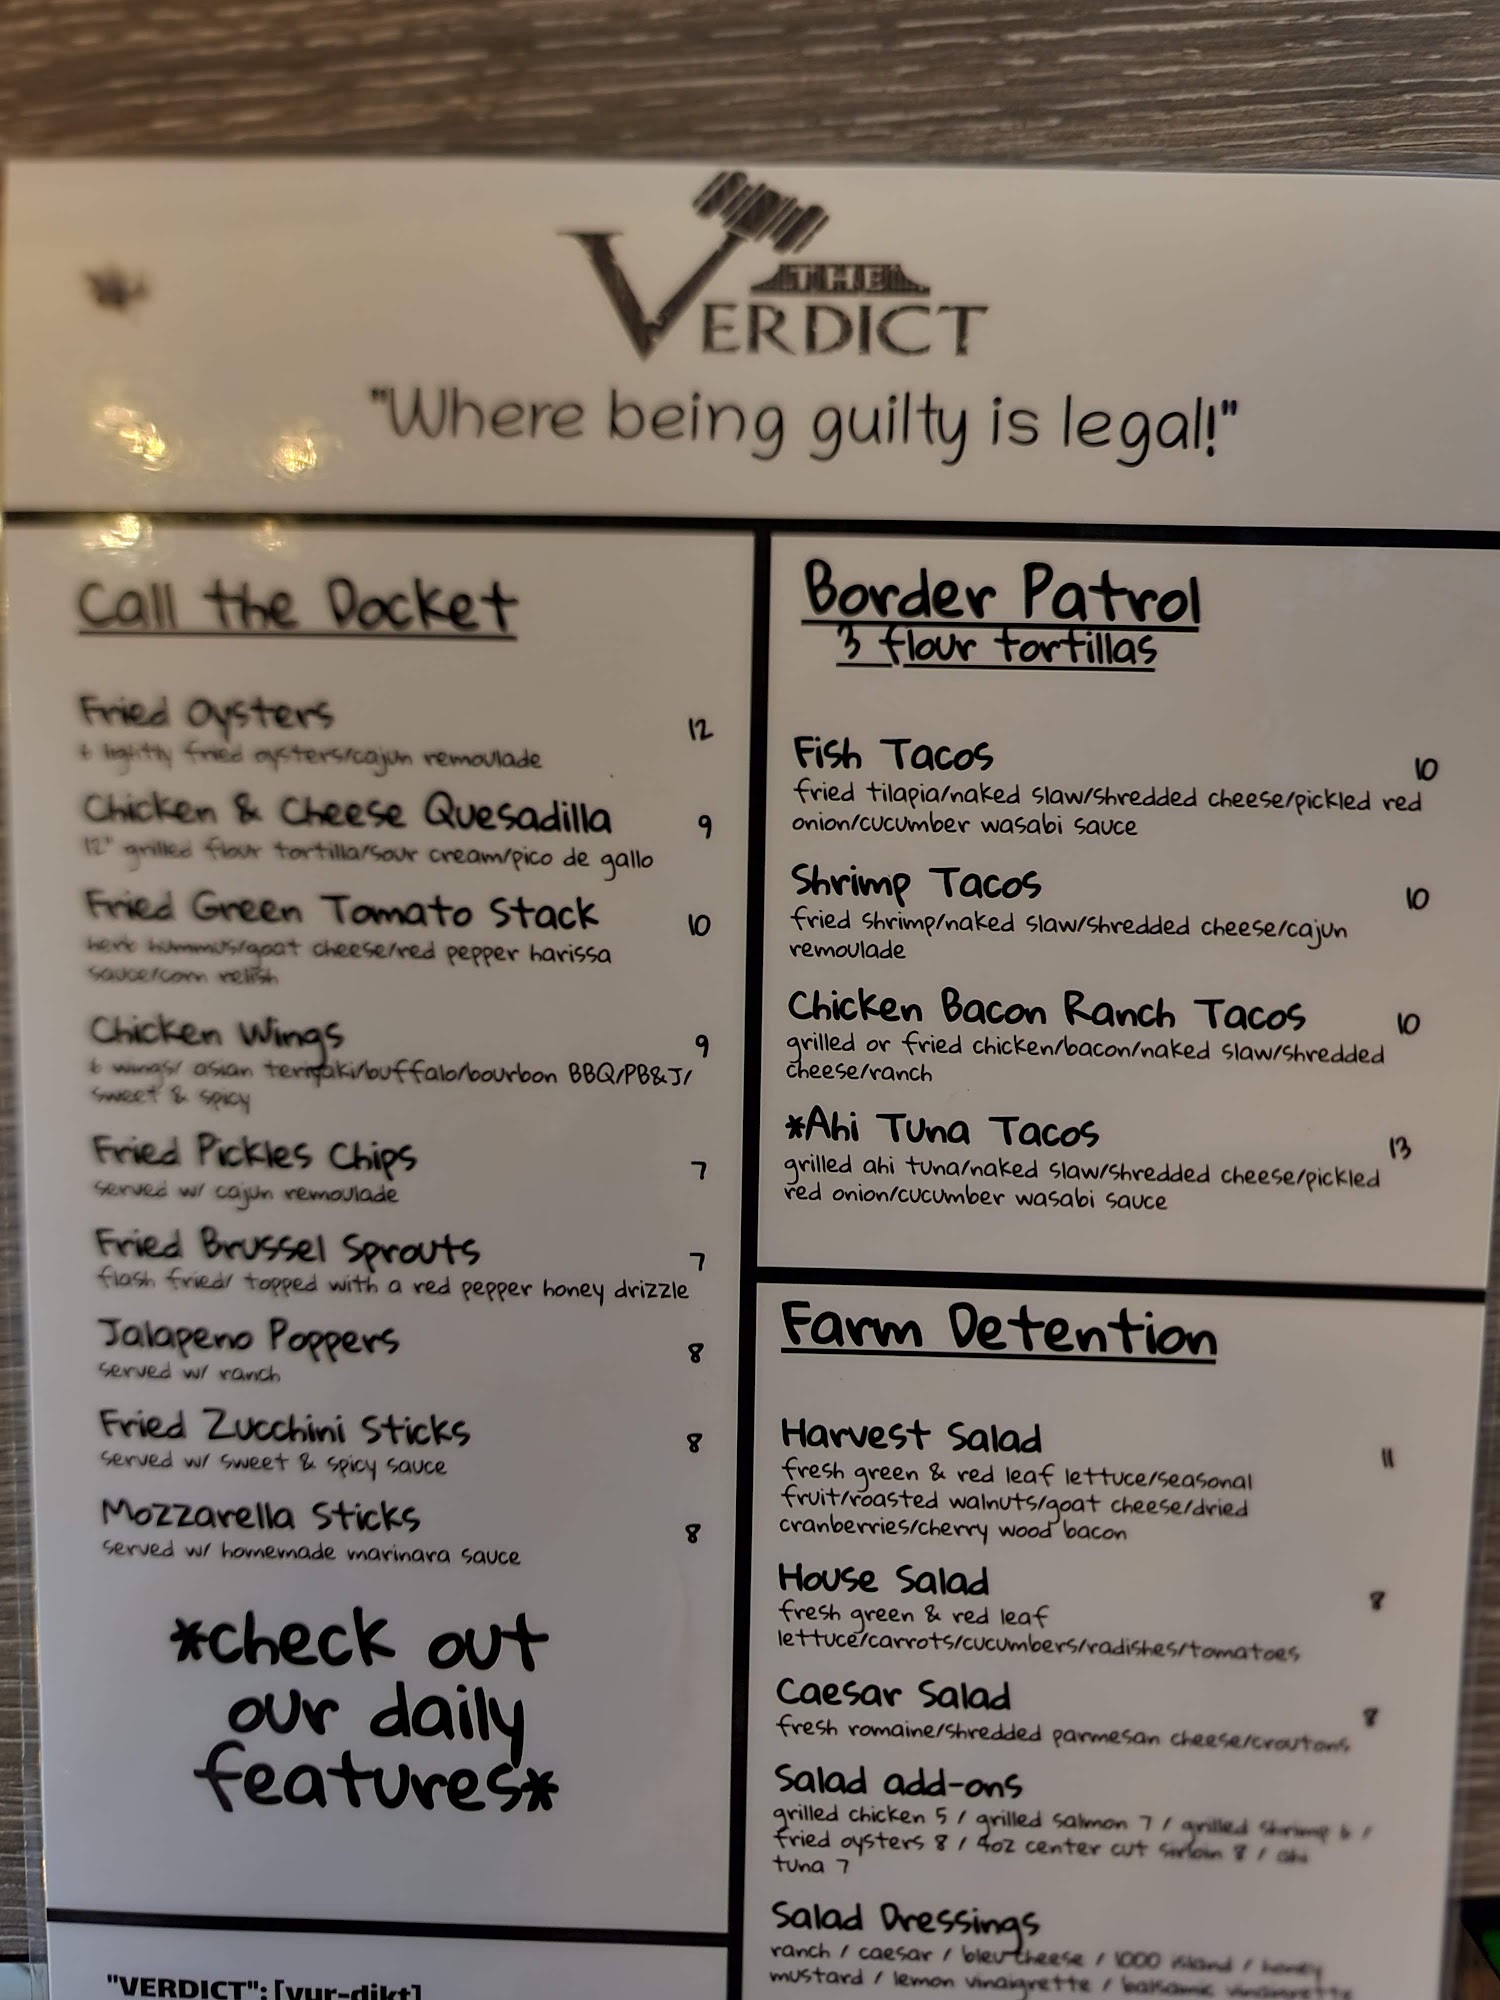 THE
VERDICT
"Where being guilty is legal!"
Call the Docket
Fried Oysters 12
6 lightly fried oysters/cajun remoulade
Chicken & Cheese Quesadilla 9
12" grilled flour tortilla/sour cream/pico de gallo
Fried Green Tomato Stack 10
herb hummus/goat cheese/red pepper harissa
sauce/corn relish
Chicken Wings 9
6 wings/ asian teriyaki/buffalo/bourbon BBQ/PB&J/
sweet & spicy
Fried Pickles Chips 7
served w/ cajun remoulade
Fried Brussel Sprouts 7
flash fried/ topped with a red pepper honey drizzle
Jalapeno Poppers 8
served w/ ranch
Fried Zucchini Sticks 8
served w/ sweet & spicy sauce
Mozzarella Sticks 8
served w/ homemade marinara sauce
*check out
our daily
features*
"VERDICT": [vur-dikt]
Border Patrol
3 flour tortillas
Fish Tacos 10
fried tilapia/naked slaw/shredded cheese/pickled red
onion/cucumber wasabi sauce
Shrimp Tacos 10
fried shrimp/naked slaw/shredded cheese/cajun
remoulade
Chicken Bacon Ranch Tacos 10
grilled or fried chicken/bacon/naked slaw/shredded
cheese/ranch
*Ahi Tuna Tacos 13
grilled ahi tuna/naked slaw/shredded cheese/pickled
red onion/cucumber wasabi sauce
Farm Detention
Harvest Salad 11
fresh green & red leaf lettuce/seasonal
fruit/roasted walnuts/goat cheese/dried
cranberries/cherry wood bacon
House Salad 8
fresh green & red leaf
lettuce/carrots/cucumbers/radishes/tomatoes
Caesar Salad 8
fresh romaine/shredded parmesan cheese/croutons
Salad add-ons
grilled chicken 5 / grilled salmon 7 / grilled shrimp 6 /
fried oysters 8 / 4oz center cut sirloin 8 / ahi
tuna 7
Salad Dressings
ranch / caesar / bleu cheese / 1000 island / honey
mustard / lemon vinaigrette / balsamic vinaigrette